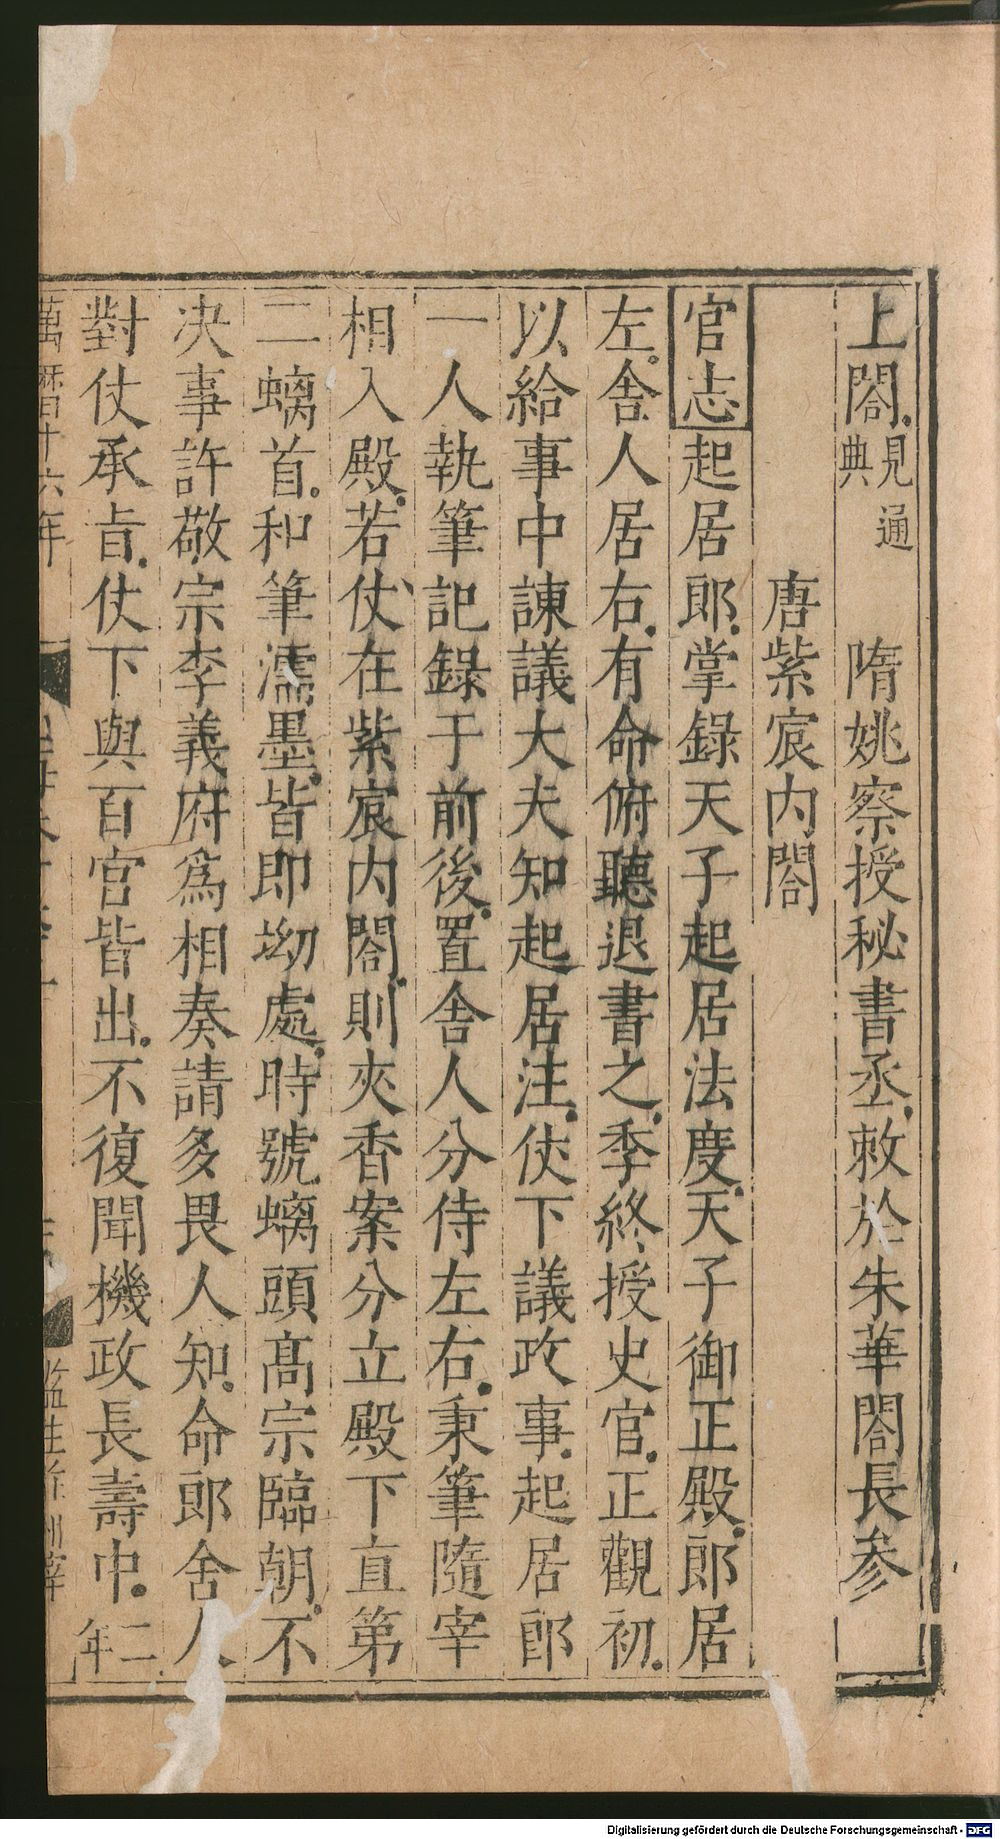 上閤見通典　隋姚察授秘書丞敕於朱華閤長參
唐紫宸内閤
官志起居郎掌錄天子起居法度天子御正殿郎居
左舍人居右有命俯聽退書之季終授史官正觀初
以給事中諫議大夫知起居注使下議政事起居郎
一人執筆記錄于前後置舍人分侍左右秉筆隨宰
相入殿若仗在紫宸内閤則夾香案分立殿下直第
二螭首和筆濡墨皆即坳處時號螭頭髙宗臨朝不
决事許敬宗李義府爲相奏請多畏人知命郎舍人
對仗承旨仗下與百官皆出不復聞機政長壽中二年
萬曆十六年
Digitalisierung gefördert durch die Deutsche Forschungsgemeinschaft - DFG